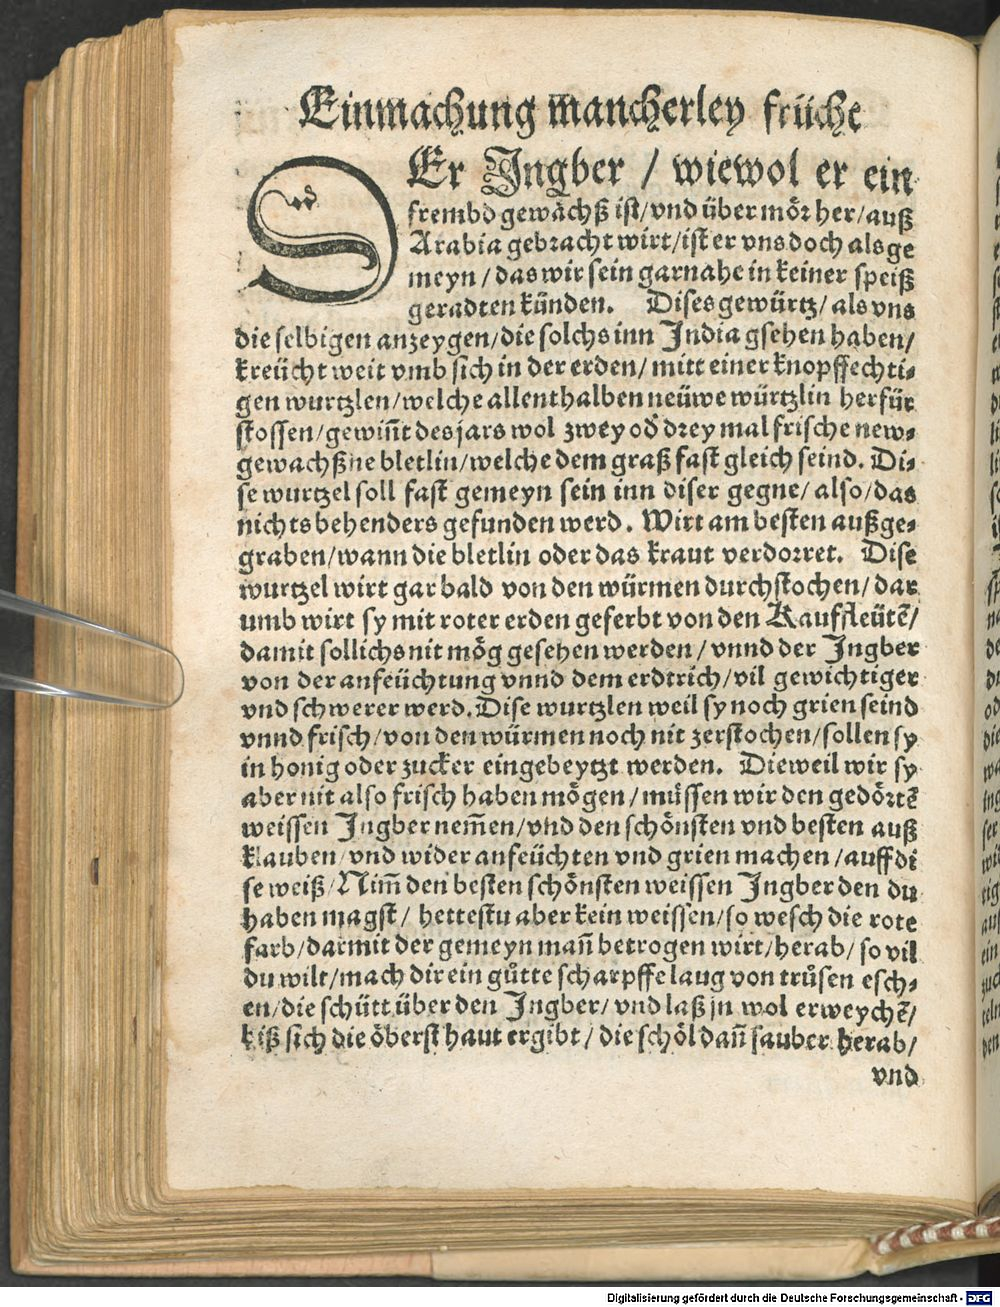 Einmachung mancherley früche
DEr Jngber / wiewol er ein
frembd gewächß ist/vnd über mör her/auß
Arabia gebracht wirt/ist er vns doch als ge
meyn/das wir sein gar nahe in keiner speiß
geradten künden. Dises gewürtz/als vns
die selbigen anzeygen/die solchs inn India gsehen haben/
kreücht weit vmb sich in der erden/mitt einer knopffechti⸗
gen wurtzlen/welche allenthalben neüwe würtzlin herfür
stossen/gewiñt des jars wol zwey od̕ drey mal frische new⸗
gewachßne bletlin/welche dem graß fast gleich seind. Di⸗
se wurtzel soll fast gemeyn sein inn diser gegne/also/das
nichts behenders gefunden werd. Wirt am besten außge⸗
graben/wann die bletlin oder das kraut verdorret. Dise
wurtzel wirt gar bald von den würmen durchstochen/dar
umb wirt sy mit roter erden geferbt von den Kauffleütẽ/
damit sollichs nit mög gesehen werden/vnnd der Jngber
von der anfeüchtung vnnd dem erdtrich/vil gewichtiger
vnd schwerer werd. Dise wurtzlen weil sy noch grien seind
vnnd frisch/von den würmen noch nit zerstochen/sollen sy
in honig oder zucker eingebeytzt werden. Dieweil wir sy
aber nit also frisch haben mögen/müssen wir den gedörtẽ
weissen Jngber nem̃en/vnd den schönsten vnd besten auß
klauben/vnd wider anfeüchten vnd grien machen/auff di
se weiß/Nim̃ den besten schönsten weissen Jngber den du
haben magst/hettestu aber kein weissen/so wesch die rote
farb/darmit der gemeyn mañ betrogen wirt/herab/so vil
du wilt/mach dir ein gůtte scharpffe laug von trůsen esch⸗
en/die schütt über den Jngber/vnd laß jn wol erweychẽ/
biß sich die öberst haut ergibt/die schöl dañ sauber herab/
vnd
Digitalisierung gefördert durch die Deutsche Forschungsgemeinschaft - DFG